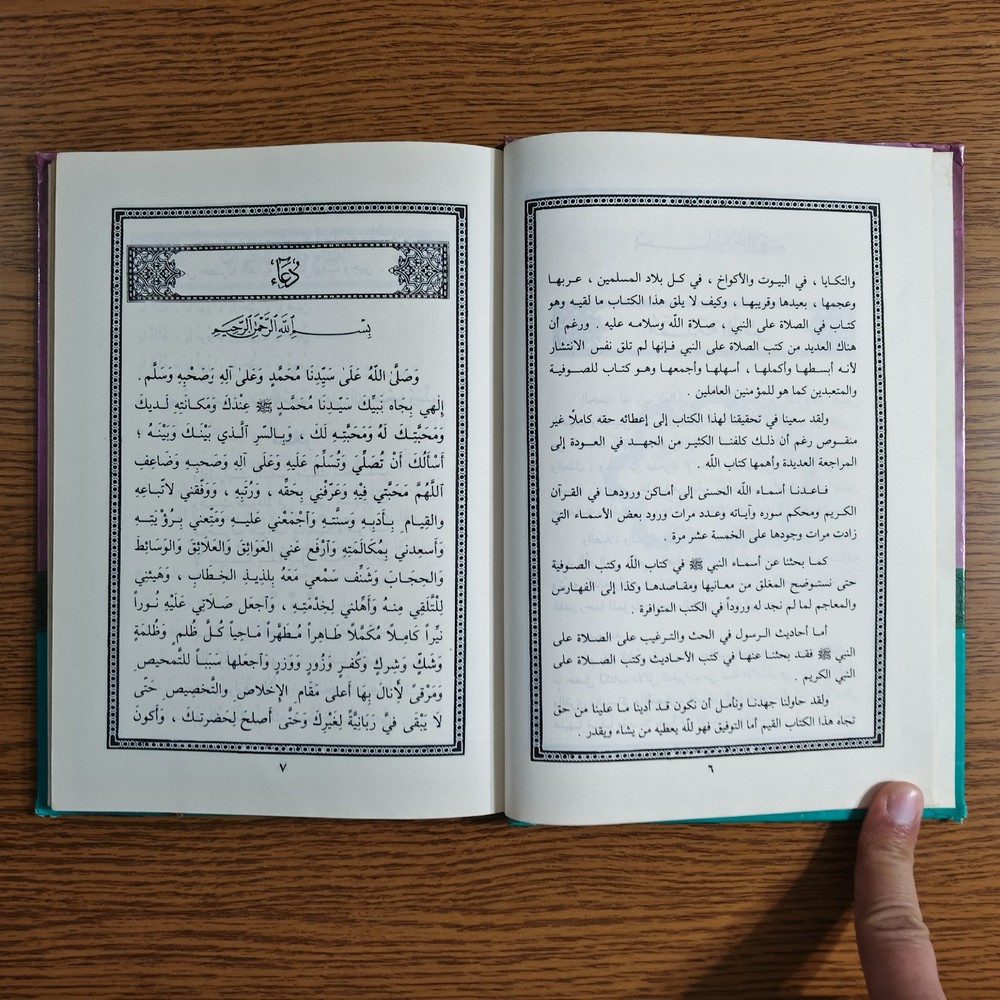 والتكايا ، في البيوت والأكواخ ، في كل بلاد المسلمين ، عربها
وعجمها ، بعيدها وقريبها ، وكيف لا يلق هذا الكتاب ما لقيه وهو
كتاب في الصلاة على النبي ، صلاة الله وسلامه عليه . ورغم أن
هناك العديد من كتب الصلاة على النبي فإنها لم تلق نفس الانتشار
لأنه أبسطها وأكملها ، أسهلها وأجمعها وهو كتاب للصوفية
والمتعبدين كما هو للمؤمنين العاملين .
ولقد سعينا في تحقيقنا لهذا الكتاب إلى إعطائه حقه كاملاً غير
منقوص رغم أن ذلك كلفنا الكثير من الجهد في العودة إلى
المراجعة العديدة وأهمها كتاب الله .
فاعدنا أسماء الله الحسنى إلى أماكن ورودها في القرآن
الكريم ومحكم سوره وآياته وعدد مرات ورود بعض الأسماء التي
زادت مرات وجودها على الخمسة عشر مرة .
كما بحثنا عن أسماء النبي ﷺ في كتاب الله وكتب الصوفية
حتى نستوضح المغلق من معانيها ومقاصدها وكذا إلى الفهارس
والمعاجم لما لم نجد له وروداً في الكتب المتوافرة .
أما أحاديث الرسول في الحث والترغيب على الصلاة على
النبي ﷺ فقد بحثنا عنها في كتب الأحاديث وكتب الصلاة على
النبي الكريم .
ولقد حاولنا جهدنا ونأمل أن نكون قد أدينا ما علينا من حق
تجاه هذا الكتاب القيم أما التوفيق فهو لله يعطيه من يشاء ويقدر .
٦
دُعَاءُ
بِسْمِ ٱللَّهِ ٱلرَّحْمَٰنِ ٱلرَّحِيمِ
وَصَلَّىٰ اللَّهُ عَلَىٰ سَيِّدِنَا مُحَمَّدٍ وَعَلىٰ آلِهِ وَصَحْبِهِ وَسَلَّم .
إلٰهِي بِجَاه نَبِيِّكَ سَيِّدِنَا مُحَمَّدٍ ﷺ عِنْدَكَ وَمَكَانَتِهِ لَدِيكَ
وَمَحَبَّتِكَ لَهُ وَمَحَبَّتِهِ لَك ، وَبِالسّرِ الَّذي بَيْنَكَ وَبَيْنَهُ ؛
أَسْأَلُكَ أَنْ تُصَلِّيَ وَتُسَلِّمَ عَلَيْهِ وَعَلَى آلِهِ وَصَحبِهِ وَضَاعِف
ٱللَّهُمَّ مَحَبَّتي فِيْهِ وَعَرِّفْنِي بِحَقِّه ، وَرُتَبِهِ ، وَوَفِّقني لاتّباعِهِ
والقِيام بِأَدَبِهِ وَسنَّتهِ وَٱجْمَعْنِي عَلَيهِ وَمَتِّعني بِرُؤيَتِهِ
وَأسعِدني بِمُكَالَمَتِهِ وَٱرْفَع عَني العَوائِقَ وَالعَلائِقَ وَالوَسائِطَ
وَالحِجَابَ وَشَنِّف سَمْعِي مَعَهُ بِلذِيذِ الخِطَابِ ، وَهَيئني
لِلتَّلَقِّي مِنهُ وَأَهِّلني لِخِدْمَتِهِ ، وَٱجعَل صَلَاتِي عَلَيْهِ نُوراً
نيِّراً كامِلاً مُكَمَّلاً طَاهِراً مُطَهَّراً مَاحِياً كُلَّ ظُلمٍ وَظُلمَةٍ
وَشَكٍّ وَشِركٍ وَكُفرٍ وَزُورٍ وَوَزرٍ وَٱجعَلها سَبَباً لِلتَّمحِيصِ
وَمَرْقىً لِأَنالَ بِهَا أعلى مَقَامِ الإخلاصِ والتَّخصِيصِ حَتّى
لَا يَبْقى فيَّ رَبَانِيَّةٌ لِغَيْرِكَ وَحَتَّى أصلحَ لِحَضرتِكَ ، وَأكونَ
٧